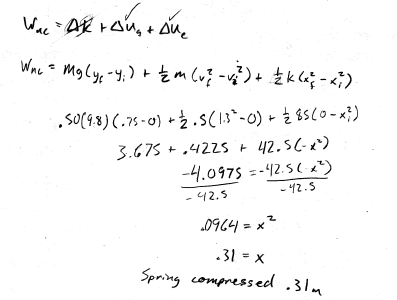 Wnc = ΔK + ΔUg + ΔUe
Wnc = Mg(yf-yi) + 1/2 m (vf² - vi²) + 1/2 k (xf² - xi²)
.50(9.8)(.75-0) + 1/2 .5(1.3²-0) + 1/2 85(0-xi²)
3.675 + .4225 + 42.5(-x²)
-4.0975 = -42.5(-x²)
-42.5 -42.5
.0964 = x²
.31 = x
Spring compressed .31m